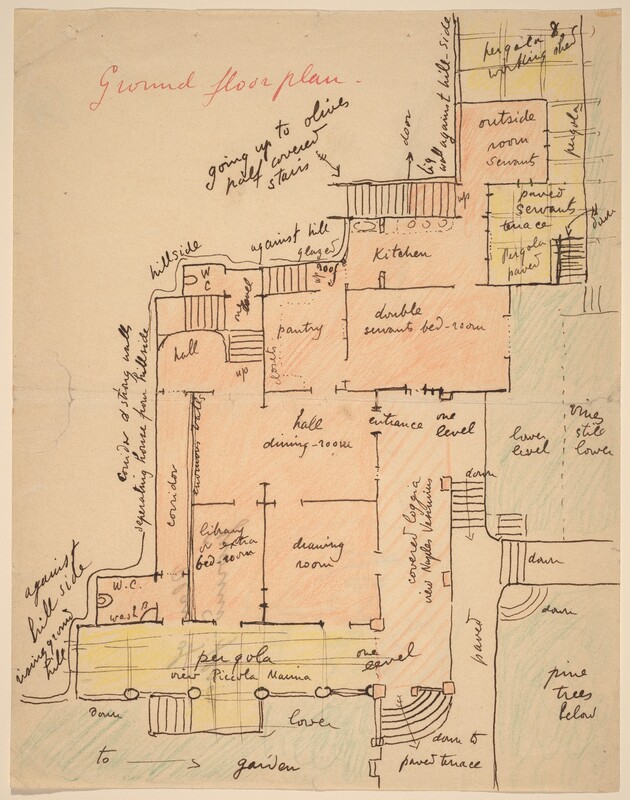 Ground floor plan.
going up to olives
half covered
stairs
door
big
wall against hill side
pergola &
working shed
pergola
outside
room
servants
up
paved
servants
terrace
pergola
paved
against hill
glazed
roof
up
Kitchen
hillside
W
C
pantry
closets
double
servants bed-room
hall
up
corridor & strong walls
seperating house from hillside
corridor
hall
dining-room
entrance
one
level
lower
level
still
lower
library
or extra
bed-room
drawing
room
covered loggia
view Naples Vesuvius
down
down
down
against
hill side
rising ground
hill
W.C.
wash
pergola
one
level
view Piccola Marina
paved
down
lower
pine
trees
below
down to
paved terrace
to → garden